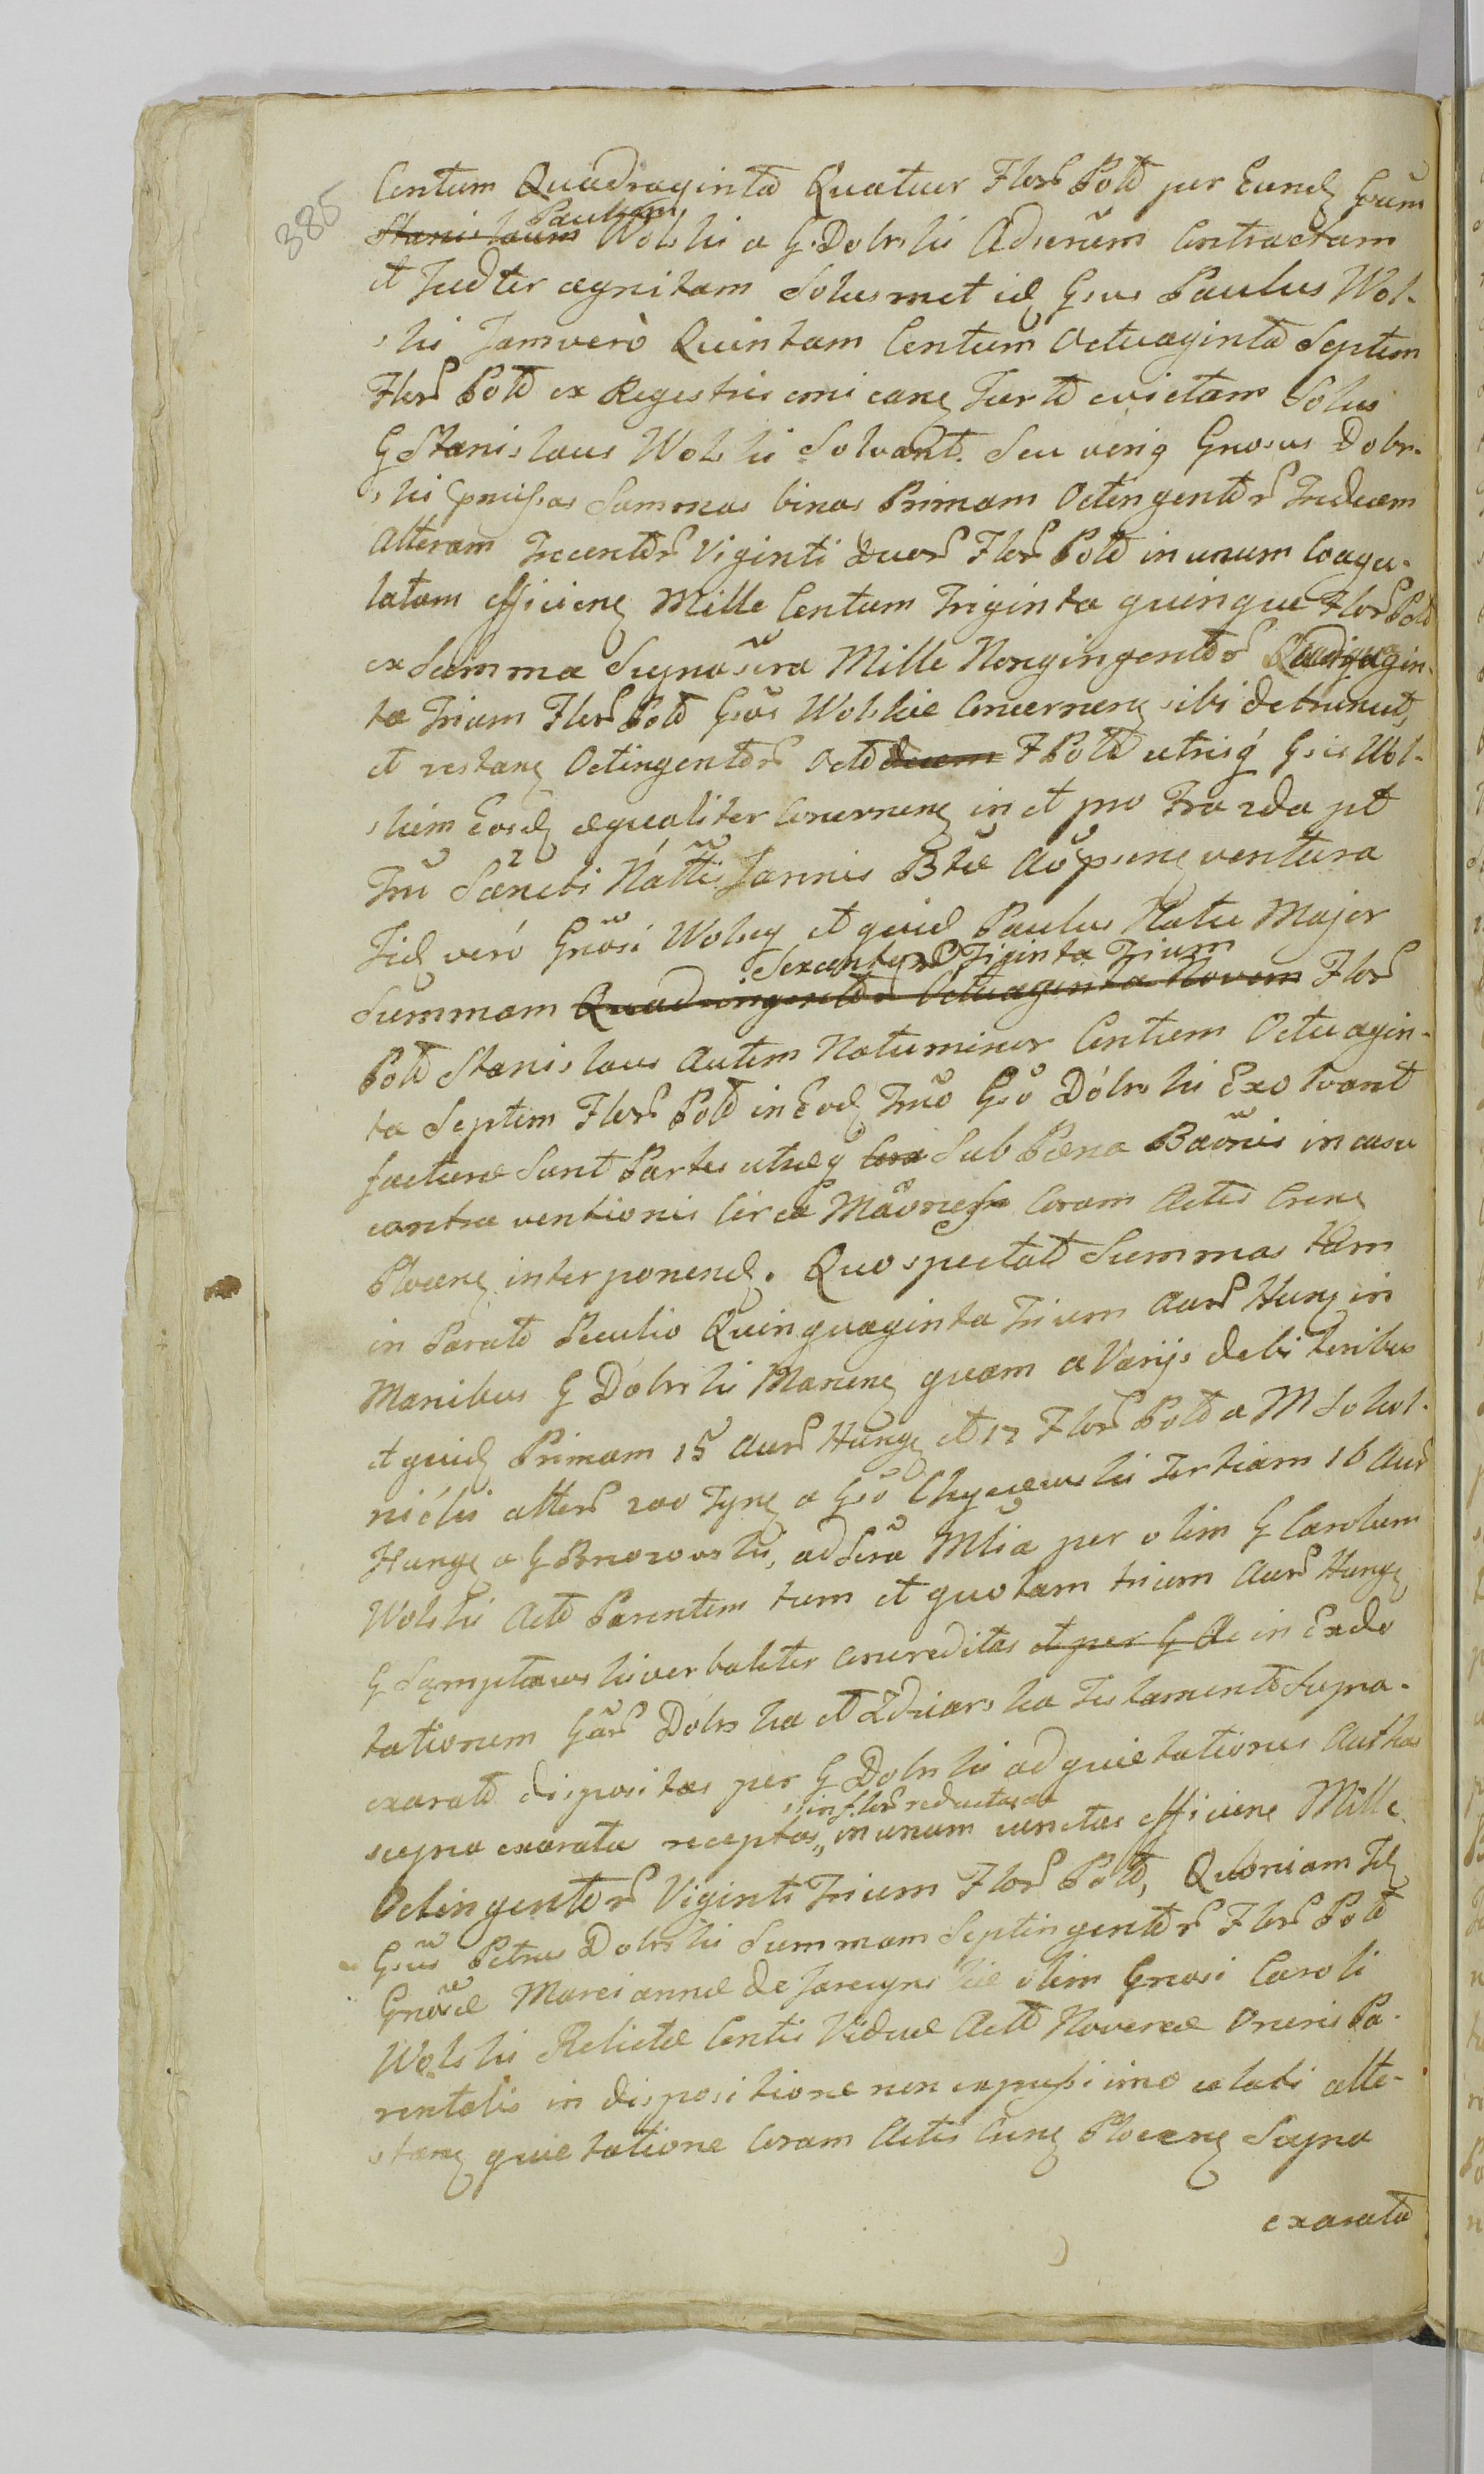 385
Centum Quadraginta Quatuor Flor Pol per Eund Gsum
Stanislaum Paulum Wolski a G. Dobrski Adserum Contractam
et Judter agnitam Solusmet id Gsus Paulus Wol-
ski Jamverò Quintam Centum Octuaginta Septem
Flor Pol ex Regestris evictam Solus
G Stanislaus Wolski Solvant. Seu veriq Gnosus Dobr-
ski Summas binas Primam Octingentor Tredecem
Alteram Trecentor Viginti Duor Flor Pol in unum coagu-
latam efficienq Mille Centum Triginta quinque Flor Pol
ex Summa Suprasera Mille Nongingentor Quadragin-
ta Trium Flor Pol Gsos Wolskie Concernenq sibi detrunut,
et restanq Octingentor Octo decem F Pol utrisq Gsis Wol-
skim Eosd aequaliter Concernenq in et pro Tra 2da pt
Tru Sancti Nattis Joannis Btae Ao psenq ventura
Jid verò Gnosi Wolscy et quid Paulus Natu Major
Sexcentor Triginta Trium
Summam Quadringentor Octuaginta Novem Flor
Pol Stanislaus Autem Natuminor Centum Octuagin-
ta Septem Flor Pol in Eod Trno Gso Dobrski Exolvant
facturae Sunt Partes utraeq Cora Sub Paena Baonis in casu
contraventionis Circa Coram Actis Crenq
Plocenq interponend. Quo spectat Summas tam
in Parato Peculio Quinquaginta Trium Aur Hung in
Manibus G Dobrski Manenq quam a Varijs debitoribus
et quid Primam 15 Aur Hung et 17 Flor Pol a M Sokol-
nicki alter 200 Tynf a Gso Chyczewski Tertiam 16 Aur
Hung a G Brzozowski, ad Sera Mlia per olim G Carolum
Wolski Act Parentem tum et quotam trium Aur Hung
G Sąmptawski verbaliter Concreditas et per G Ac in Exdo
tationum Gsar Dobrska et Zdziarska Testamento Supra-
exarato dispositas per G Dobrski ad quietationes Authas
in flor reductas et
supra exaratas receptas,, in unum iunctas efficienq Mille
Octingentor Viginti Trium Flor Pol, Quoniam Id
Gsus Petrus Dobrski Summam Septingentor Flor Pol
Gnosae Mariannae de Jarczyns olim Gnosi Caroli
Wolski Relictae Contis Viduae Act Novercae Oneris Pa-
rentalis in dispositione non expressi imo celati atte-
stanq quietatione Coram Actis Crenq Plocenq Supra
exarata